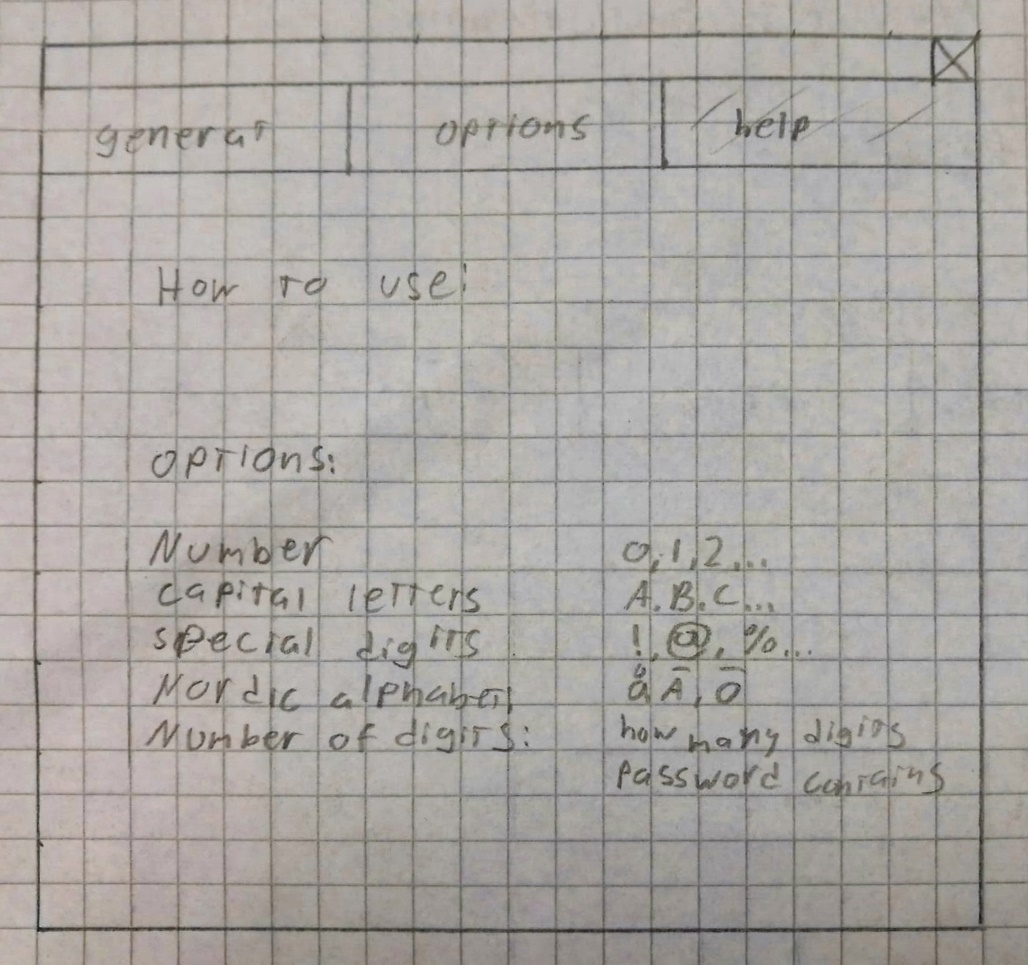 general options help
How to use:
options:
Number 0,1,2...
capital letters A.B.C...
special digits !,@,%...
Nordic alphabet, å Ā, Ō
Number of digits: how many digits
password contains